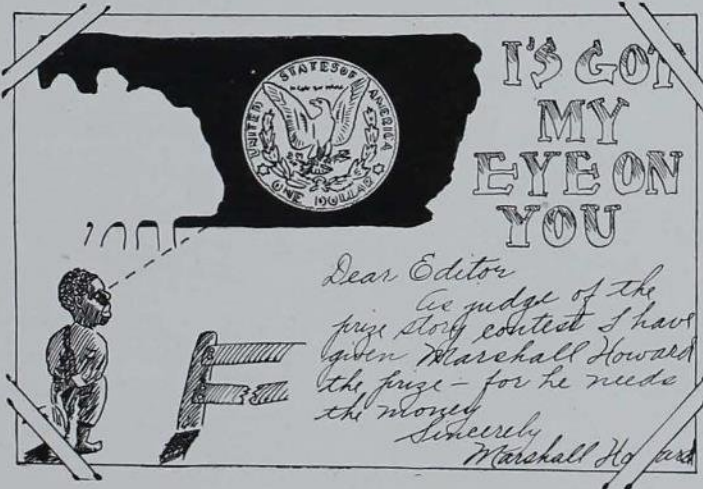 UNITED STATES OF AMERICA
ONE DOLLAR
I'S GOT
MY
EYE ON
YOU
Dear Editor
As judge of the
prize story contest I have
given Marshall Howard
the prize - for he needs
the money
Sincerely
Marshall Howard